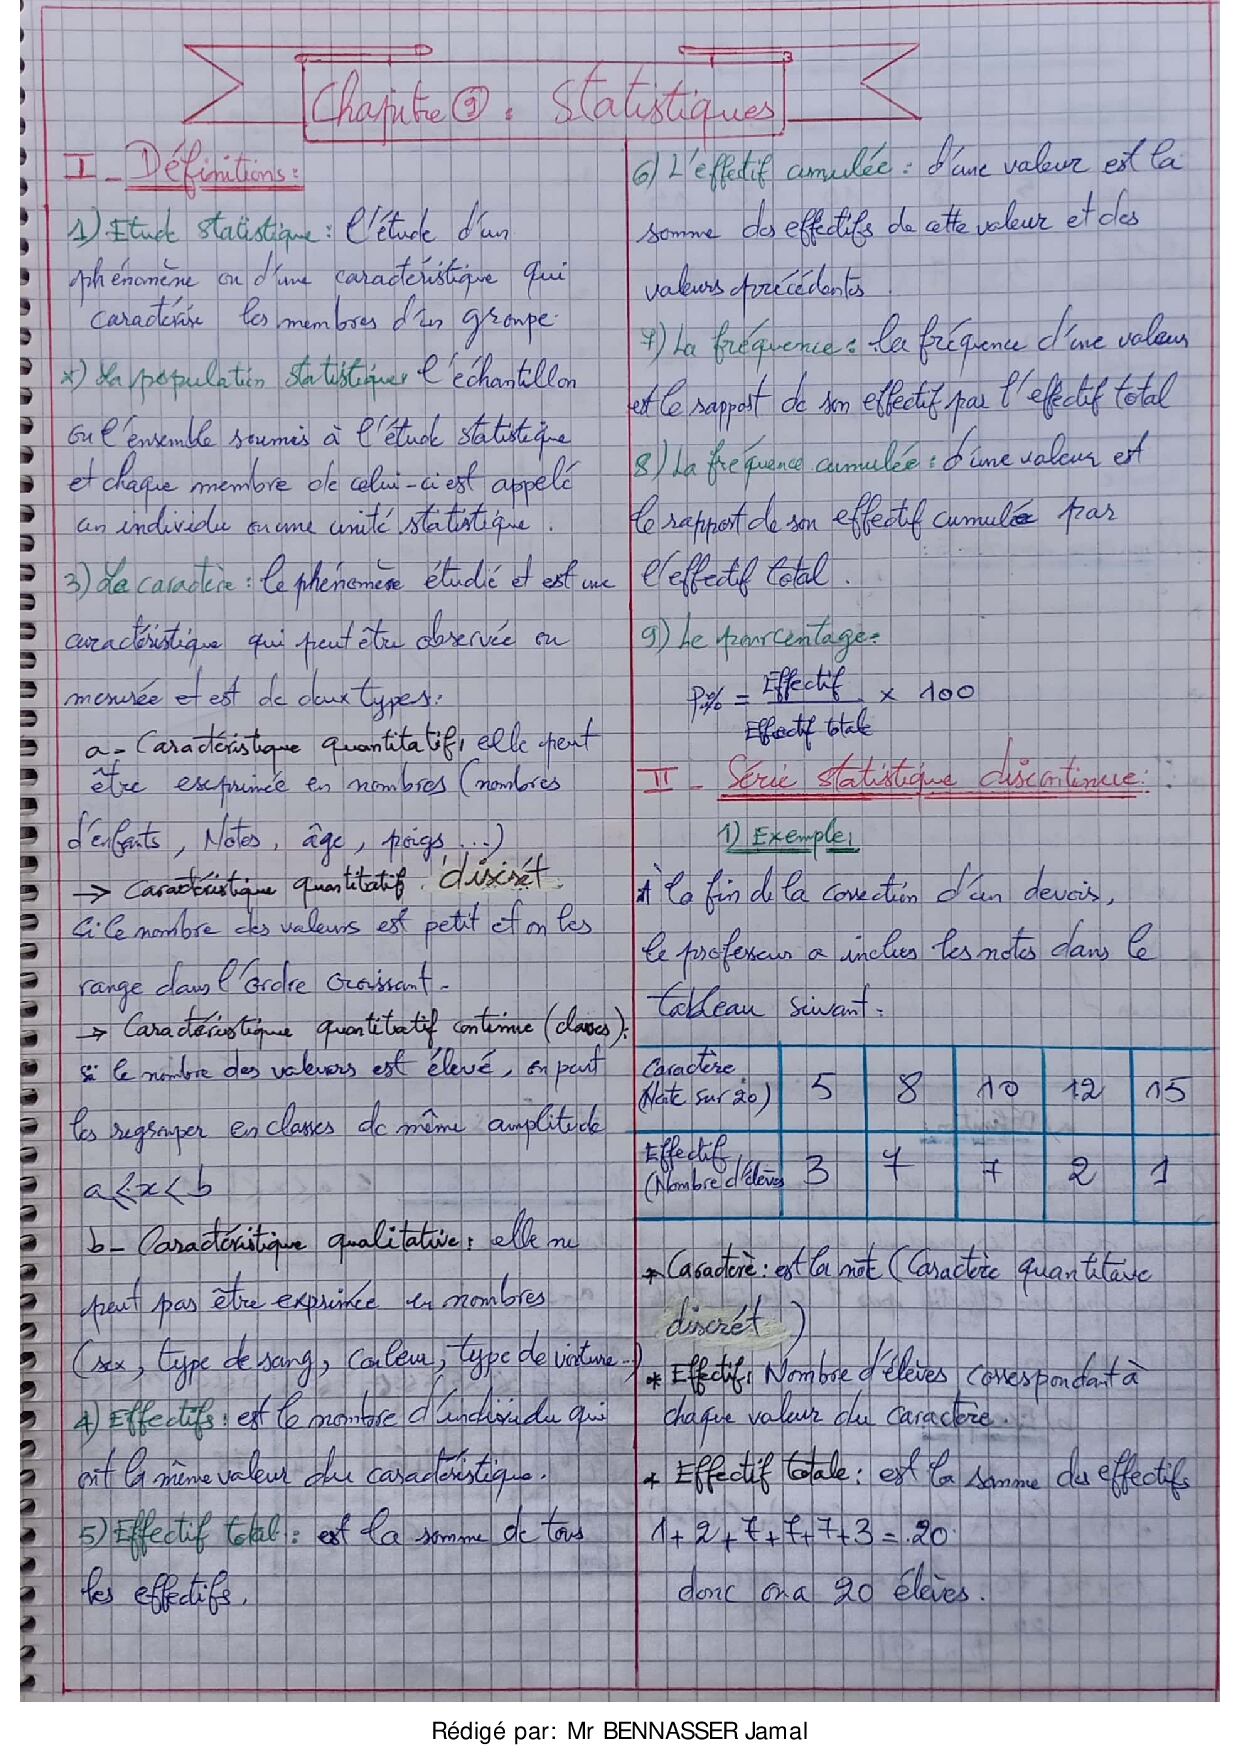 Chapitre 9 : Statistiques
I - Définitions :
1) Etude statistique : l'étude d'un
phénomène ou d'une caractéristique qui
caractérise les membres d'un groupe.
2) La population statistique : l'échantillon
ou l'ensemble soumis à l'étude statistique
et chaque membre de celui-ci est appelé
un individu ou une unité statistique.
3) Le caractère : le phénomène étudié et est une
caractéristique qui peut être observée ou
mesurée et est de deux types :
a - Caractéristique quantitatif : elle peut
être exprimée en nombres (nombres
d'enfants, Notes, âge, poigs ...)
→ Caractéristique quantitatif discrèt :
Si le nombre des valeurs est petit et on les
range dans l'ordre croissant -
→ Caractéristique quantitatif continue (classes) :
si le nombre des valeurs est élevé, on peut
les regrouper en classes de même amplitude
a ⩽ x < b
b - Caractéristique qualitative : elle ne
peut pas être exprimée en nombres
(sex, type de sang, Couleur, type de voiture ..)
4) Effectifs : est le nombre d'individu qui
ont la même valeur du caractéristique.
5) Effectif total : est la somme de tous
les effectifs.
6) L'effectif cumulée : d'une valeur est la
somme des effectifs de cette valeur et des
valeurs précédentes.
7) La fréquence : la fréquence d'une valeur
est le rapport de son effectif par l'effectif total
8) La fréquence cumulée : d'une valeur est
le rapport de son effectif cumulée par
l'effectif total.
9) Le pourcentage :
P% = Effectif / Effectif totale × 100
II - Série statistique discontinue :
1) Exemple :
A la fin de la correction d'un devoir,
le professeur a inclus les notes dans le
tableau suivant :
Caractère (Note sur 20) 5 8 10 12 15
Effectif (Nombre d'élèves 3 7 7 2 1
* Caractère : est la not (Caractère quantitave
discrét)
* Effectif : Nombre d'élèves correspondant à
chaque valeur du caractère.
* Effectif totale : est la somme des effectifs
1 + 2 + 7 + 7 + 7 + 3 = 20
donc on a 20 élèves.
Rédigé par: Mr BENNASSER Jamal